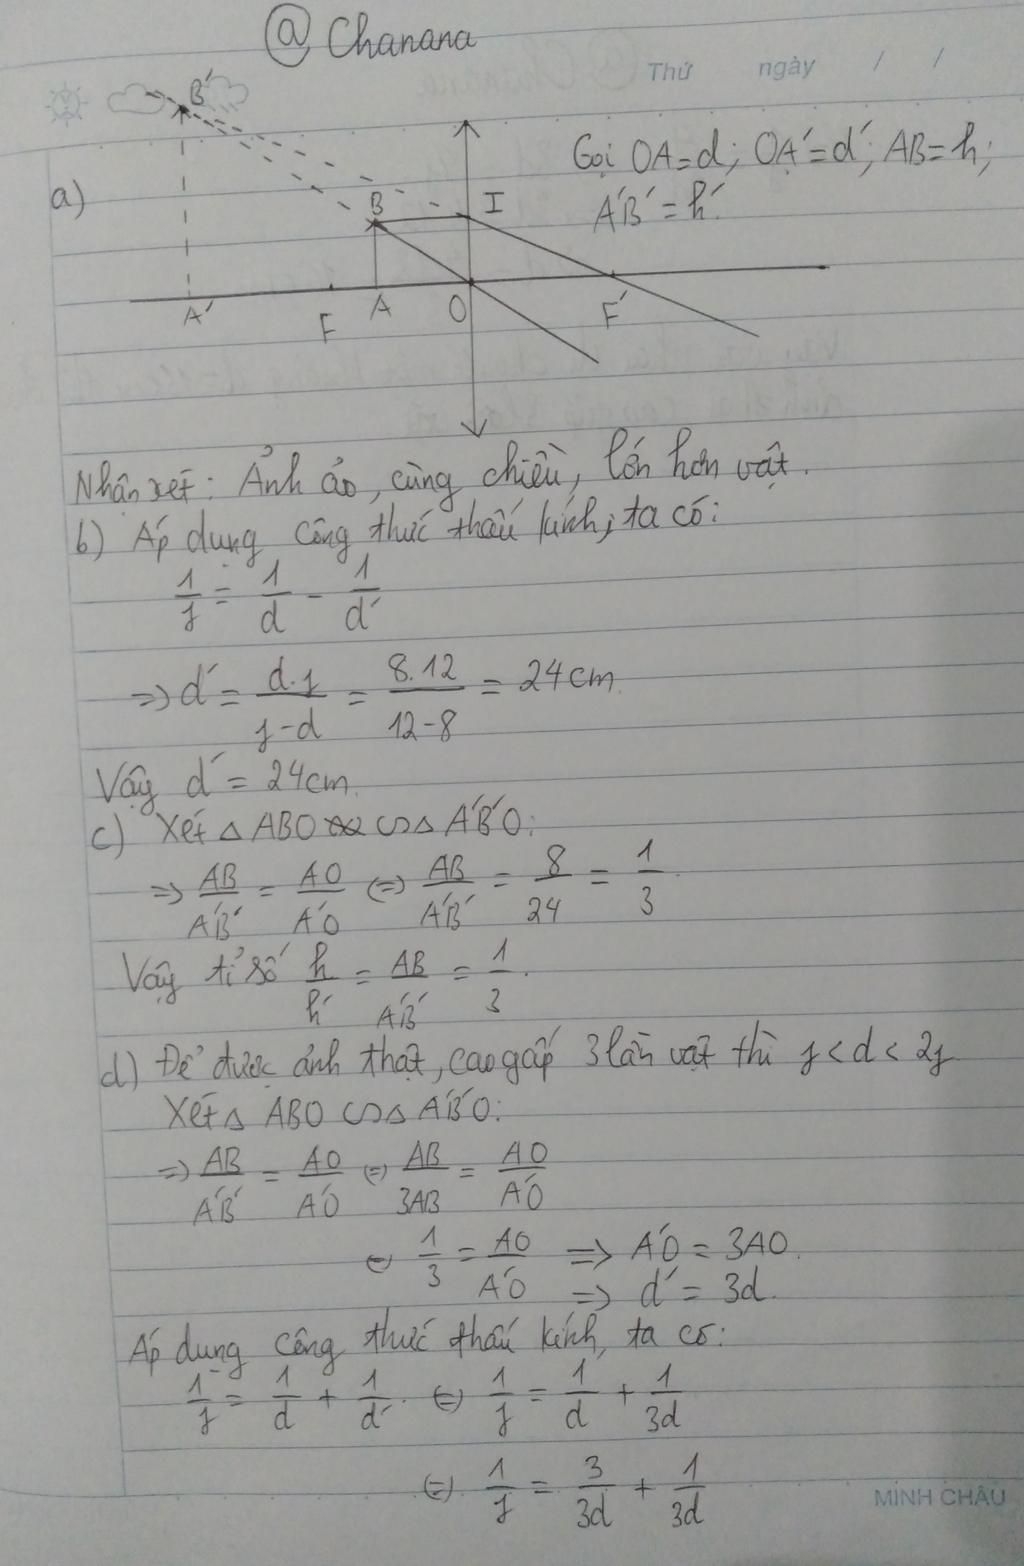 @ Chanana
Thứ ngày / /
B'
Gọi OA=d; OA'=d'; AB=h;
A'B'=h'.
a)
B I
A' F A O F'
Nhận xét: Ảnh ảo, cùng chiều, lớn hơn vật.
b) Áp dụng công thức thấu kính, ta có:
1/f = 1/d - 1/d'
=> d' = d.f/f-d = 8.12/12-8 = 24cm.
Vậy d' = 24cm.
c) Xét △ ABO ∽ △ A'B'O:
=> AB/A'B' = AO/A'O <=> AB/A'B' = 8/24 = 1/3.
Vậy tỉ số h/h' = AB/A'B' = 1/3.
d) Để được ảnh thật, cao gấp 3 lần vật thì f < d < 2f
Xét △ ABO ∽ △ A'B'O:
=> AB/A'B' = AO/A'O <=> AB/3AB = AO/A'O
<=> 1/3 = AO/A'O => A'O = 3AO.
=> d' = 3d.
Áp dụng công thức thấu kính, ta có:
1/f = 1/d + 1/d' <=> 1/f = 1/d + 1/3d
<=> 1/f = 3/3d + 1/3d
MINH CHÂU